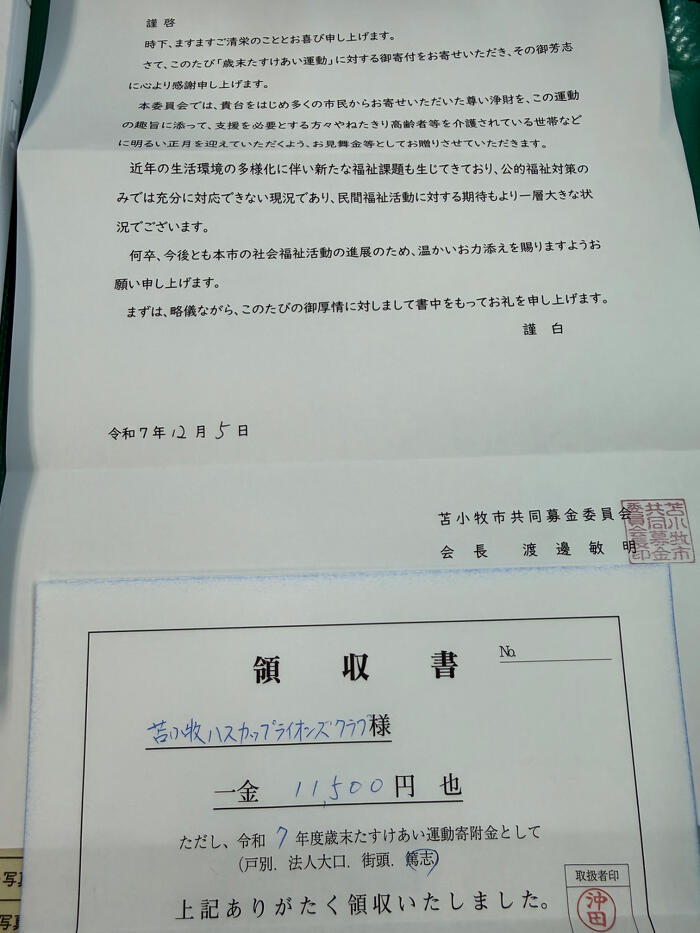 謹啓
時下、ますますご清栄のこととお喜び申し上げます。
さて、このたび「歳末たすけあい運動」に対する御寄付をお寄せいただき、その御芳志
に心より感謝申し上げます。
本委員会では、貴台をはじめ多くの市民からお寄せいただいた尊い浄財を、この運動
の趣旨に添って、支援を必要とする方々やねたきり高齢者等を介護されている世帯など
に明るい正月を迎えていただくよう、お見舞金等としてお贈りさせていただきます。
近年の生活環境の多様化に伴い新たな福祉課題も生じてきており、公的福祉対策の
みでは充分に対応できない現況であり、民間福祉活動に対する期待もより一層大きな状
況でございます。
何卒、今後とも本市の社会福祉活動の進展のため、温かいお力添えを賜りますようお
願い申し上げます。
まずは、略儀ながら、このたびの御厚情に対しまして書中をもってお礼を申し上げます。
謹白
令和7年12月5日
苫小牧市共同募金委員会
会長 渡邊敏明
苫小牧市
共同募金
委員会長印
領収書
No.
苫小牧ハスカップライオンズクラブ様
一金 11,500円也
ただし、令和7年度歳末たすけあい運動寄附金として
(戸別. 法人大口. 街頭. 篤志)
取扱者印
沖田
上記ありがたく領収いたしました。
写真
写真